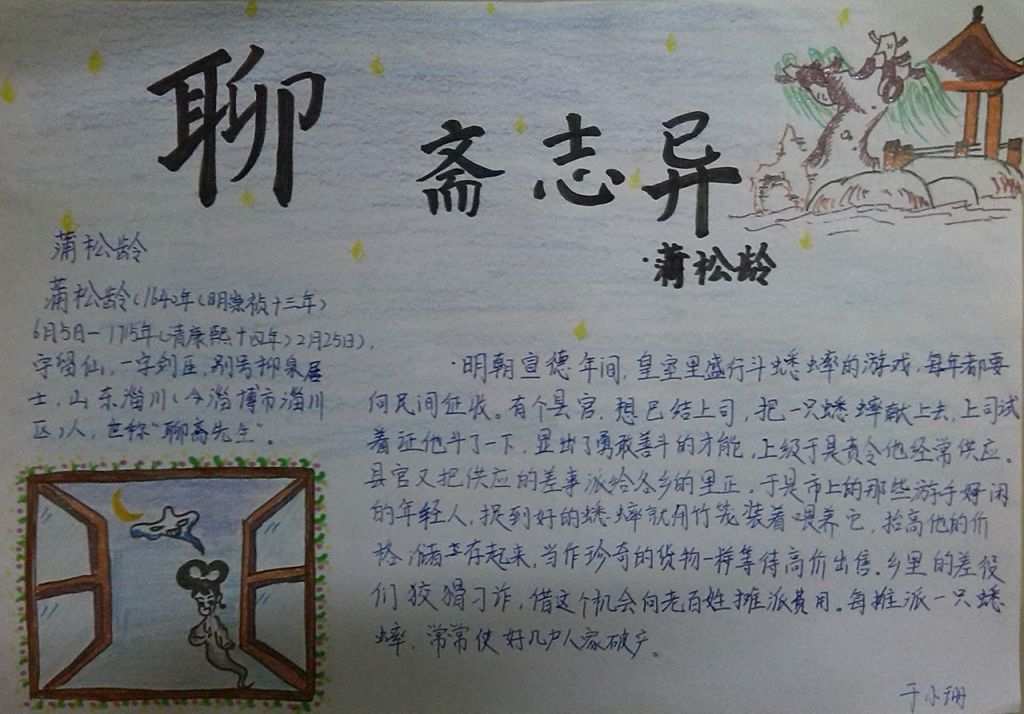 聊
斋志异
·蒲松龄
蒲松龄
蒲松龄(1640年(明崇祯十三年)
6月5日-1715年(清康熙十四年)2月25日),
字留仙,一字剑臣,别号柳泉居
士,山东淄川(今淄博市淄川
区)人,世称“聊斋先生”。
·明朝宣德年间,皇室里盛行斗蟋蟀的游戏,每年都要
向民间征收。有个县官,想巴结上司,把一只蟋蟀献上去,上司试
着让他斗了一下,显出了勇敢善斗的才能,上级于是责令他经常供应。
县官又把供应的差事派给各乡的里正。于是市上的那些游手好闲
的年轻人,捉到好的蟋蟀就用竹笼装着喂养它,抬高他的价
格,储存起来,当作珍奇的货物一样等待高价出售。乡里的差役
们狡猾刁诈,借这个机会向老百姓摊派费用。每摊派一只蟋
蟀,常常使好几户人家破产。
于小珊